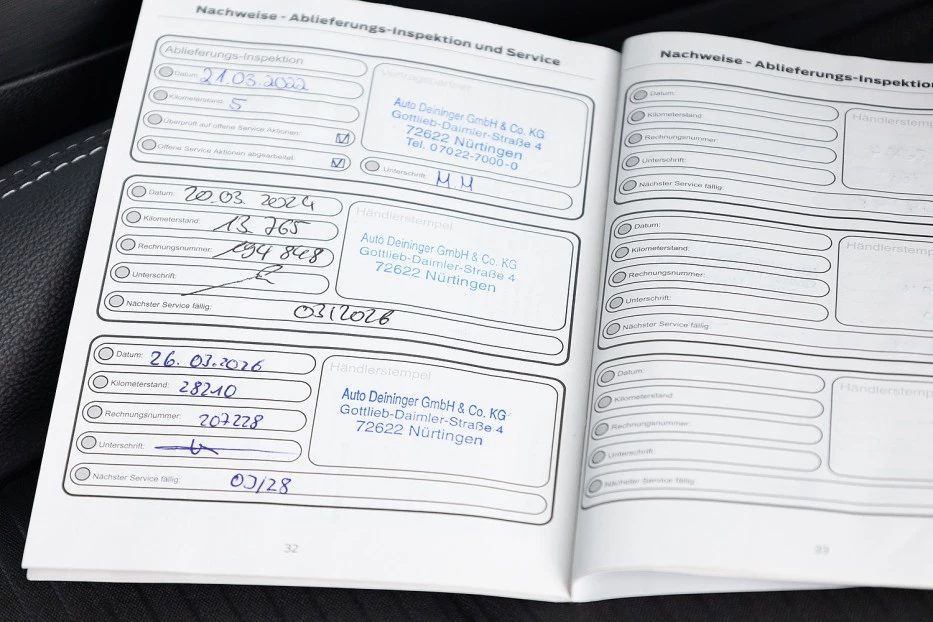 Nachweise - Ablieferungs-Inspektion und Service
Ablieferungs-Inspektion
Datum: 21.03.2022
Kilometerstand: 5
Überprüft auf offene Service Aktionen:
Offene Service Aktionen abgearbeitet:
Vertragspartner
Auto Deininger GmbH & Co. KG
Gottlieb-Daimler-Straße 4
72622 Nürtingen
Tel. 07022-7000-0
Unterschrift: M.M
Datum: 20.03.2024
Kilometerstand: 13.765
Rechnungsnummer: 194 848
Unterschrift:
Nächster Service fällig: 03/2026
Händlerstempel
Auto Deininger GmbH & Co. KG
Gottlieb-Daimler-Straße 4
72622 Nürtingen
Datum: 26.03.2026
Kilometerstand: 28210
Rechnungsnummer: 207228
Unterschrift:
Nächster Service fällig: 03/28
Händlerstempel
Auto Deininger GmbH & Co. KG
Gottlieb-Daimler-Straße 4
72622 Nürtingen
32
Nachweise - Ablieferungs-Inspektion
Datum:
Kilometerstand:
Rechnungsnummer:
Unterschrift:
Nächster Service fällig:
Händlerstemp
Datum:
Kilometerstand:
Rechnungsnummer:
Unterschrift:
Nächster Service fällig:
Händlerstemp
Datum:
Kilometerstand:
Rechnungsnummer:
Unterschrift:
Nächster Service fällig:
Händlerstemp
33